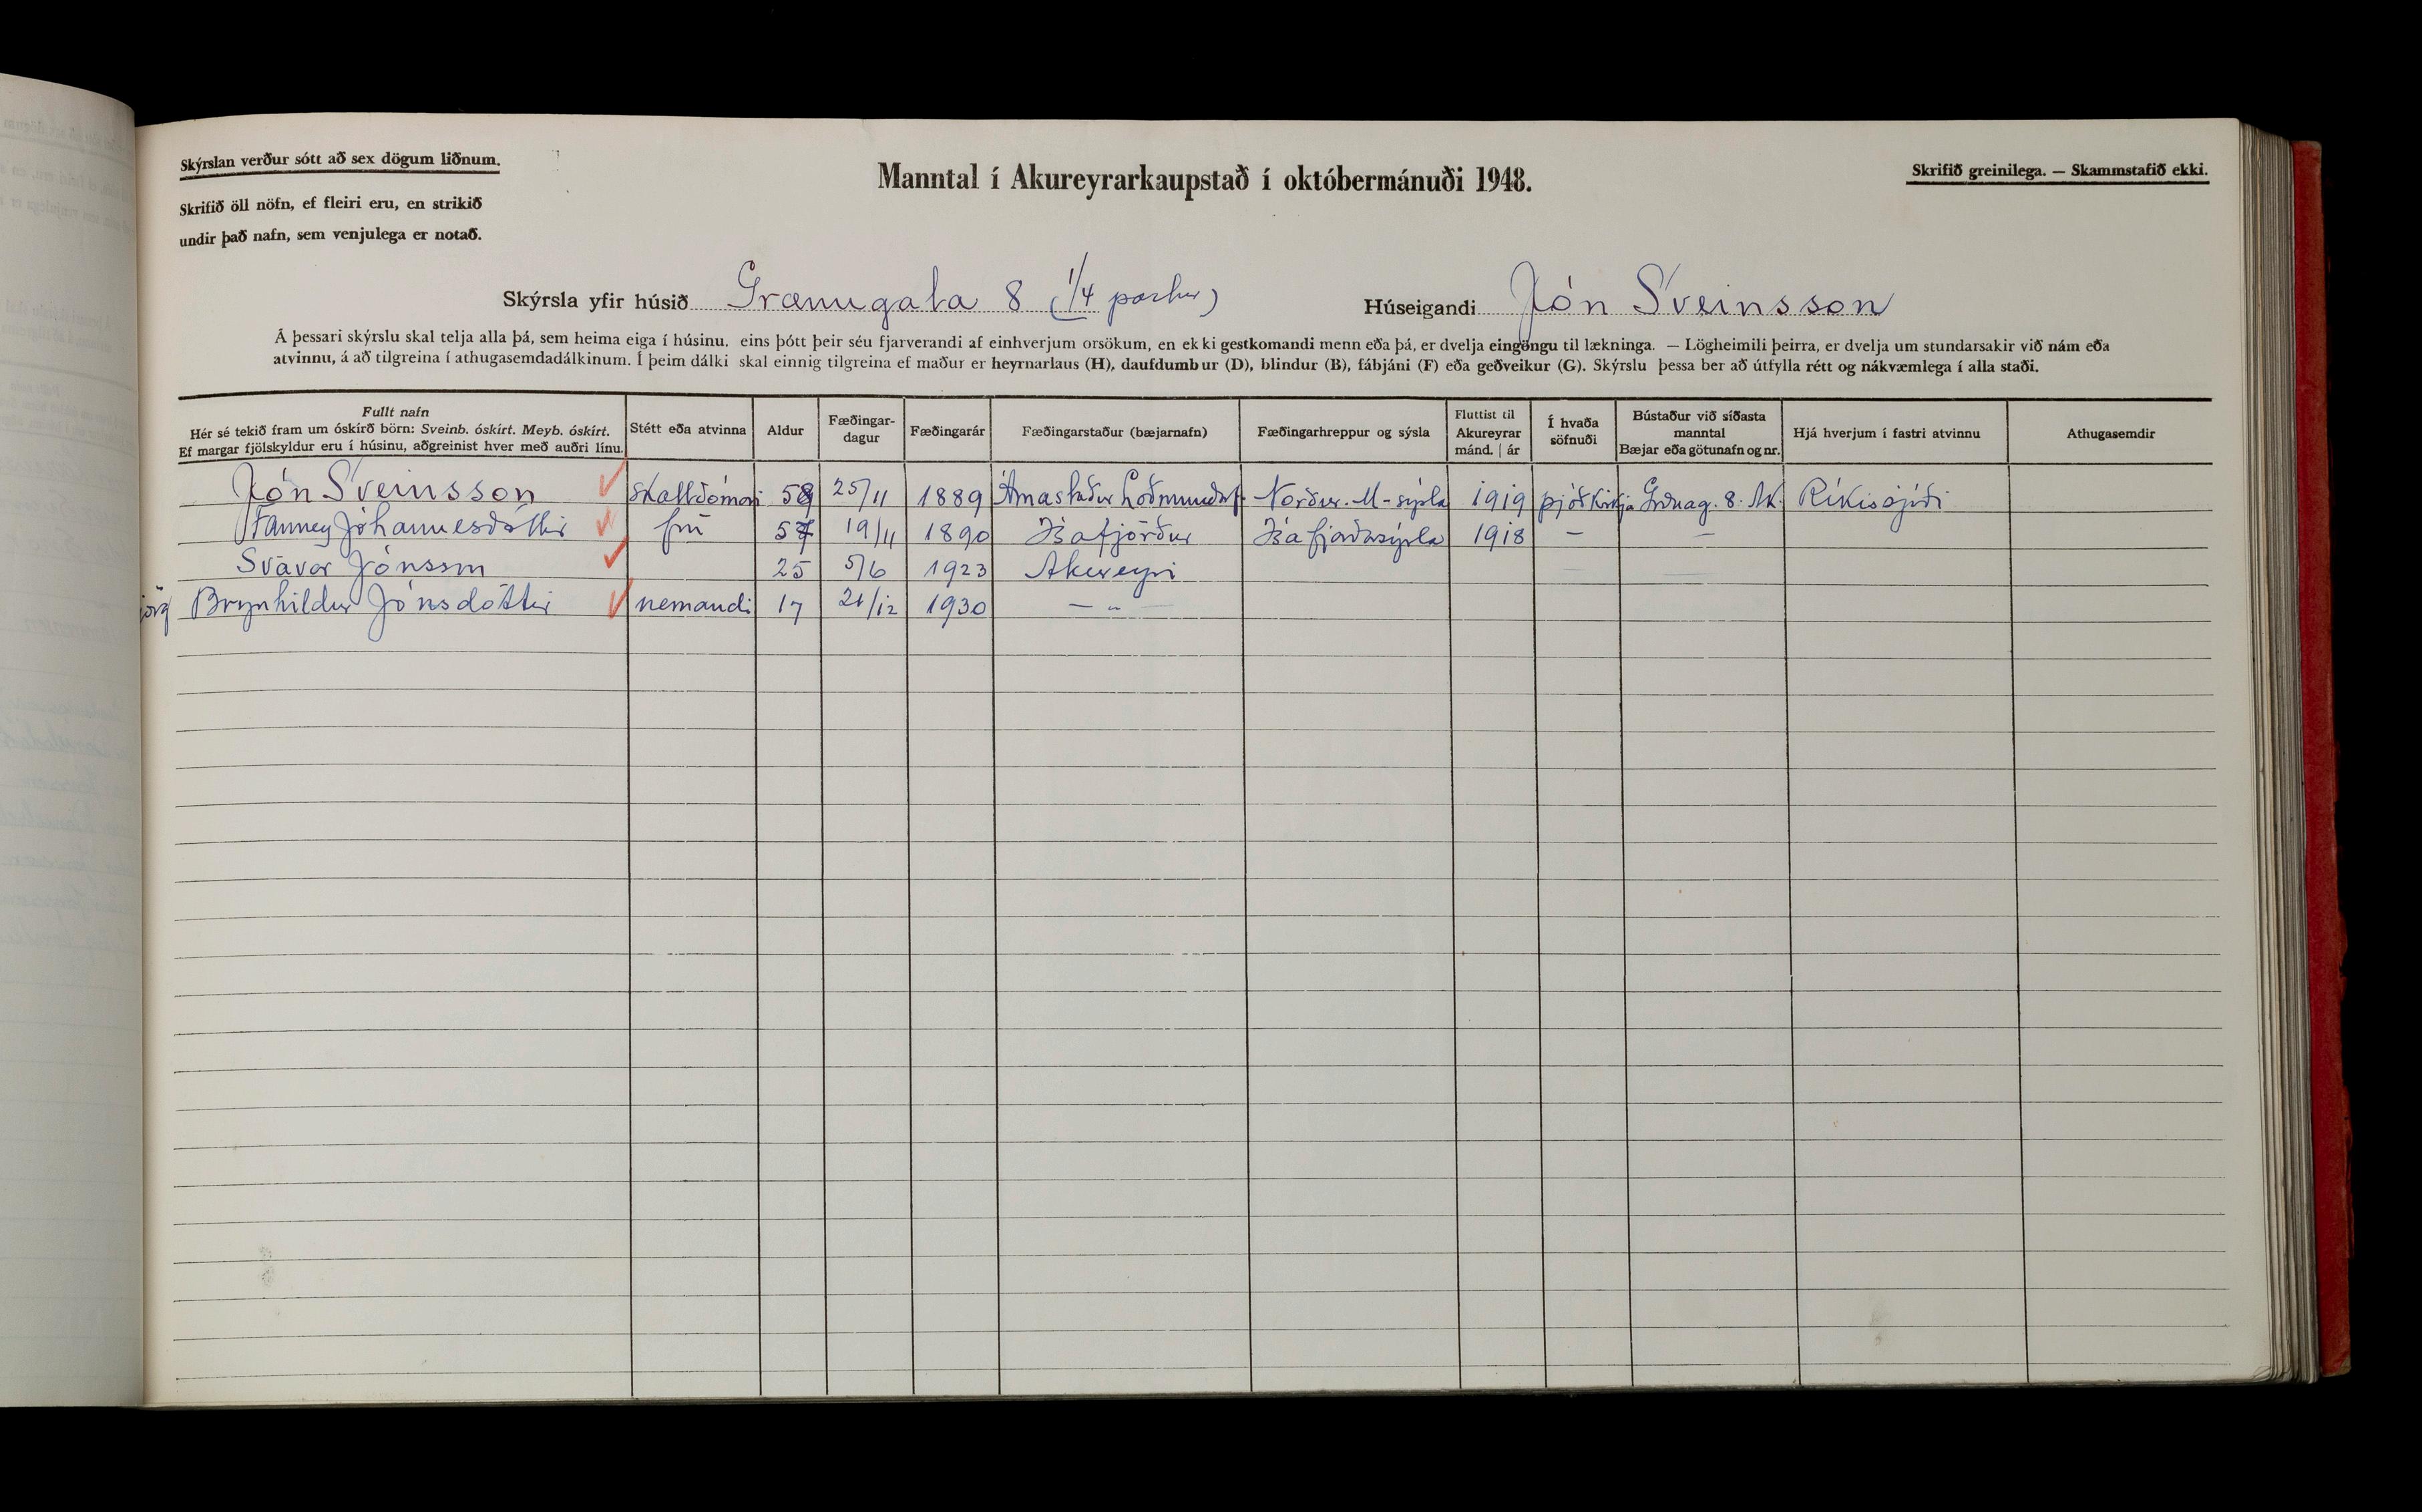 Skýrslan verður sótt að sex dögum liðnum.
Skrifið öll nöfn, ef fleiri eru, en strikið
undir það nafn, sem venjulega er notað.
Manntal í Akureyrarkaupstað í októbermánuði 1948.
Skrifið greinilega. — Skammstafið ekki.
Skýrsla yfir húsið Grænugata 8 (1/4 partur)
Húseigandi Jón Sveinsson
Á þessari skýrslu skal telja alla þá, sem heima eiga í húsinu, eins þótt þeir séu fjarverandi af einhverjum orsökum, en ekki gestkomandi menn eða þá, er dvelja eingöngu til lækninga. — Lögheimili þeirra, er dvelja um stundarsakir við nám eða
atvinnu, á að tilgreina í athugasemdadálkinum. Í þeim dálki skal einnig tilgreina ef maður er heyrnarlaus (H), daufdumbur (D), blindur (B), fábjáni (F) eða geðveikur (G). Skýrslu þessa ber að útfylla rétt og nákvæmlega í alla staði.
Fullt nafn
Hér sé tekið fram um óskírð börn: Sveinb. óskírt. Meyb. óskírt.
Ef margar fjölskyldur eru í húsinu, aðgreinist hver með auðri línu.
Stétt eða atvinna
Aldur
Fæðingar-
dagur
Fæðingarár
Fæðingarstaður (bæjarnafn)
Fæðingarhreppur og sýsla
Fluttist til
Akureyrar
mánd. | ár
Í hvaða
söfnuði
Bústaður við síðasta
manntal
Bæjar eða götunafn og nr.
Hjá hverjum í fastri atvinnu
Athugasemdir
Jón Sveinsson skattdómari 58 25/11 1889 Árnastaðir Loðmundarf. Norður-M-sýsla 1919 þjóðkirkja Grænag. 8. Ak. Ríkissjóði
Fanney Jóhannesdóttir frú 57 19/11 1890 Ísafjörður Ísafjarðarsýsla 1918 — —
Svavar Jónsson 25 5/6 1923 Akureyri
Brynhildur Jónsdóttir nemandi 17 21/12 1930 — „ —